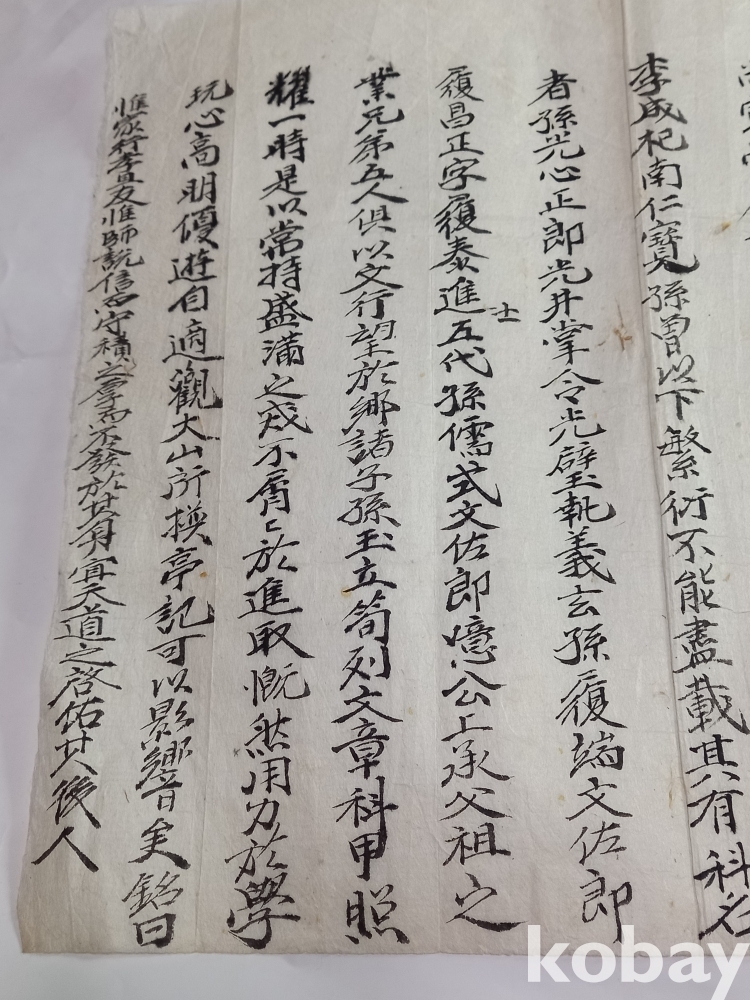 李成杞南仁寶孫曾以下繁衍不能盡載其有科名
者孫光心正郎光井掌令光璧執義玄孫履端文佐郎
履昌正字履泰進士五代孫儒式文佐郎噫公上承父祖之
業兄弟五人俱以文行望於鄉諸子孫玉立筍列文章科甲照
耀一時是以常持盛滿之戒不屑〻於進取慨然用力於學
玩心高明優遊自適觀大山所撰亭記可以影響矣銘曰
惟家行孝且友惟師說信而守積之厚而不發於其身宜天道之啓佑其後人
kobay